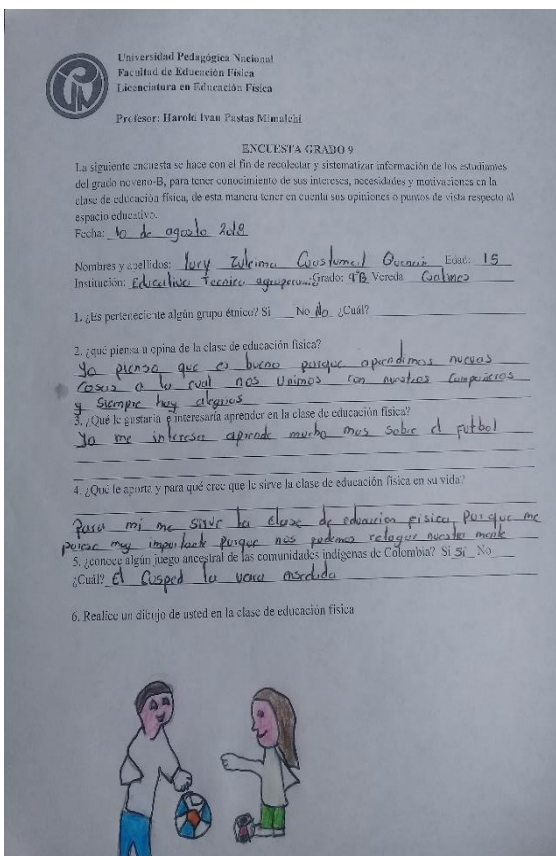 Universidad Pedagógica Nacional
Facultad de Educación Física
Licenciatura en Educación Física
Profesor: Harold Ivan Pastas Mimalchi
ENCUESTA GRADO 9
La siguiente encuesta se hace con el fin de recolectar y sistematizar información de los estudiantes
del grado noveno-B, para tener conocimiento de sus intereses, necesidades y motivaciones en la
clase de educación física, de esta manera tener en cuenta sus opiniones o puntos de vista respecto al
espacio educativo.
Fecha: 10 de agosto 2018
Nombres y apellidos: Yury Zuleima Edad: 15
Institución: Educativa Tecnica Grado: 9°B Vereda
1. ¿Es perteneciente algún grupo étnico? Si No No ¿Cuál?
2. ¿qué piensa u opina de la clase de educación física?
Yo pienso que es bueno porque aprendimos nuevas
Cosas a la cual nos Unimos con nuestros compañeros
y siempre hay alegrias
3. ¿Qué le gustaría e interesaría aprender en la clase de educación física?
Yo me interesa aprende mucho mas sobre el futbol
4. ¿Qué le aporta y para qué cree que le sirve la clase de educación física en su vida?
Para mi me sirve la clase de educacion fisica, porque me
parese muy importante porque nos podemos relagar nuestra mente
5. ¿conoce algún juego ancestral de las comunidades indígenas de Colombia? Si Si No
¿Cuál? El Cusped la vara ensedida
6. Realice un dibujo de usted en la clase de educación física